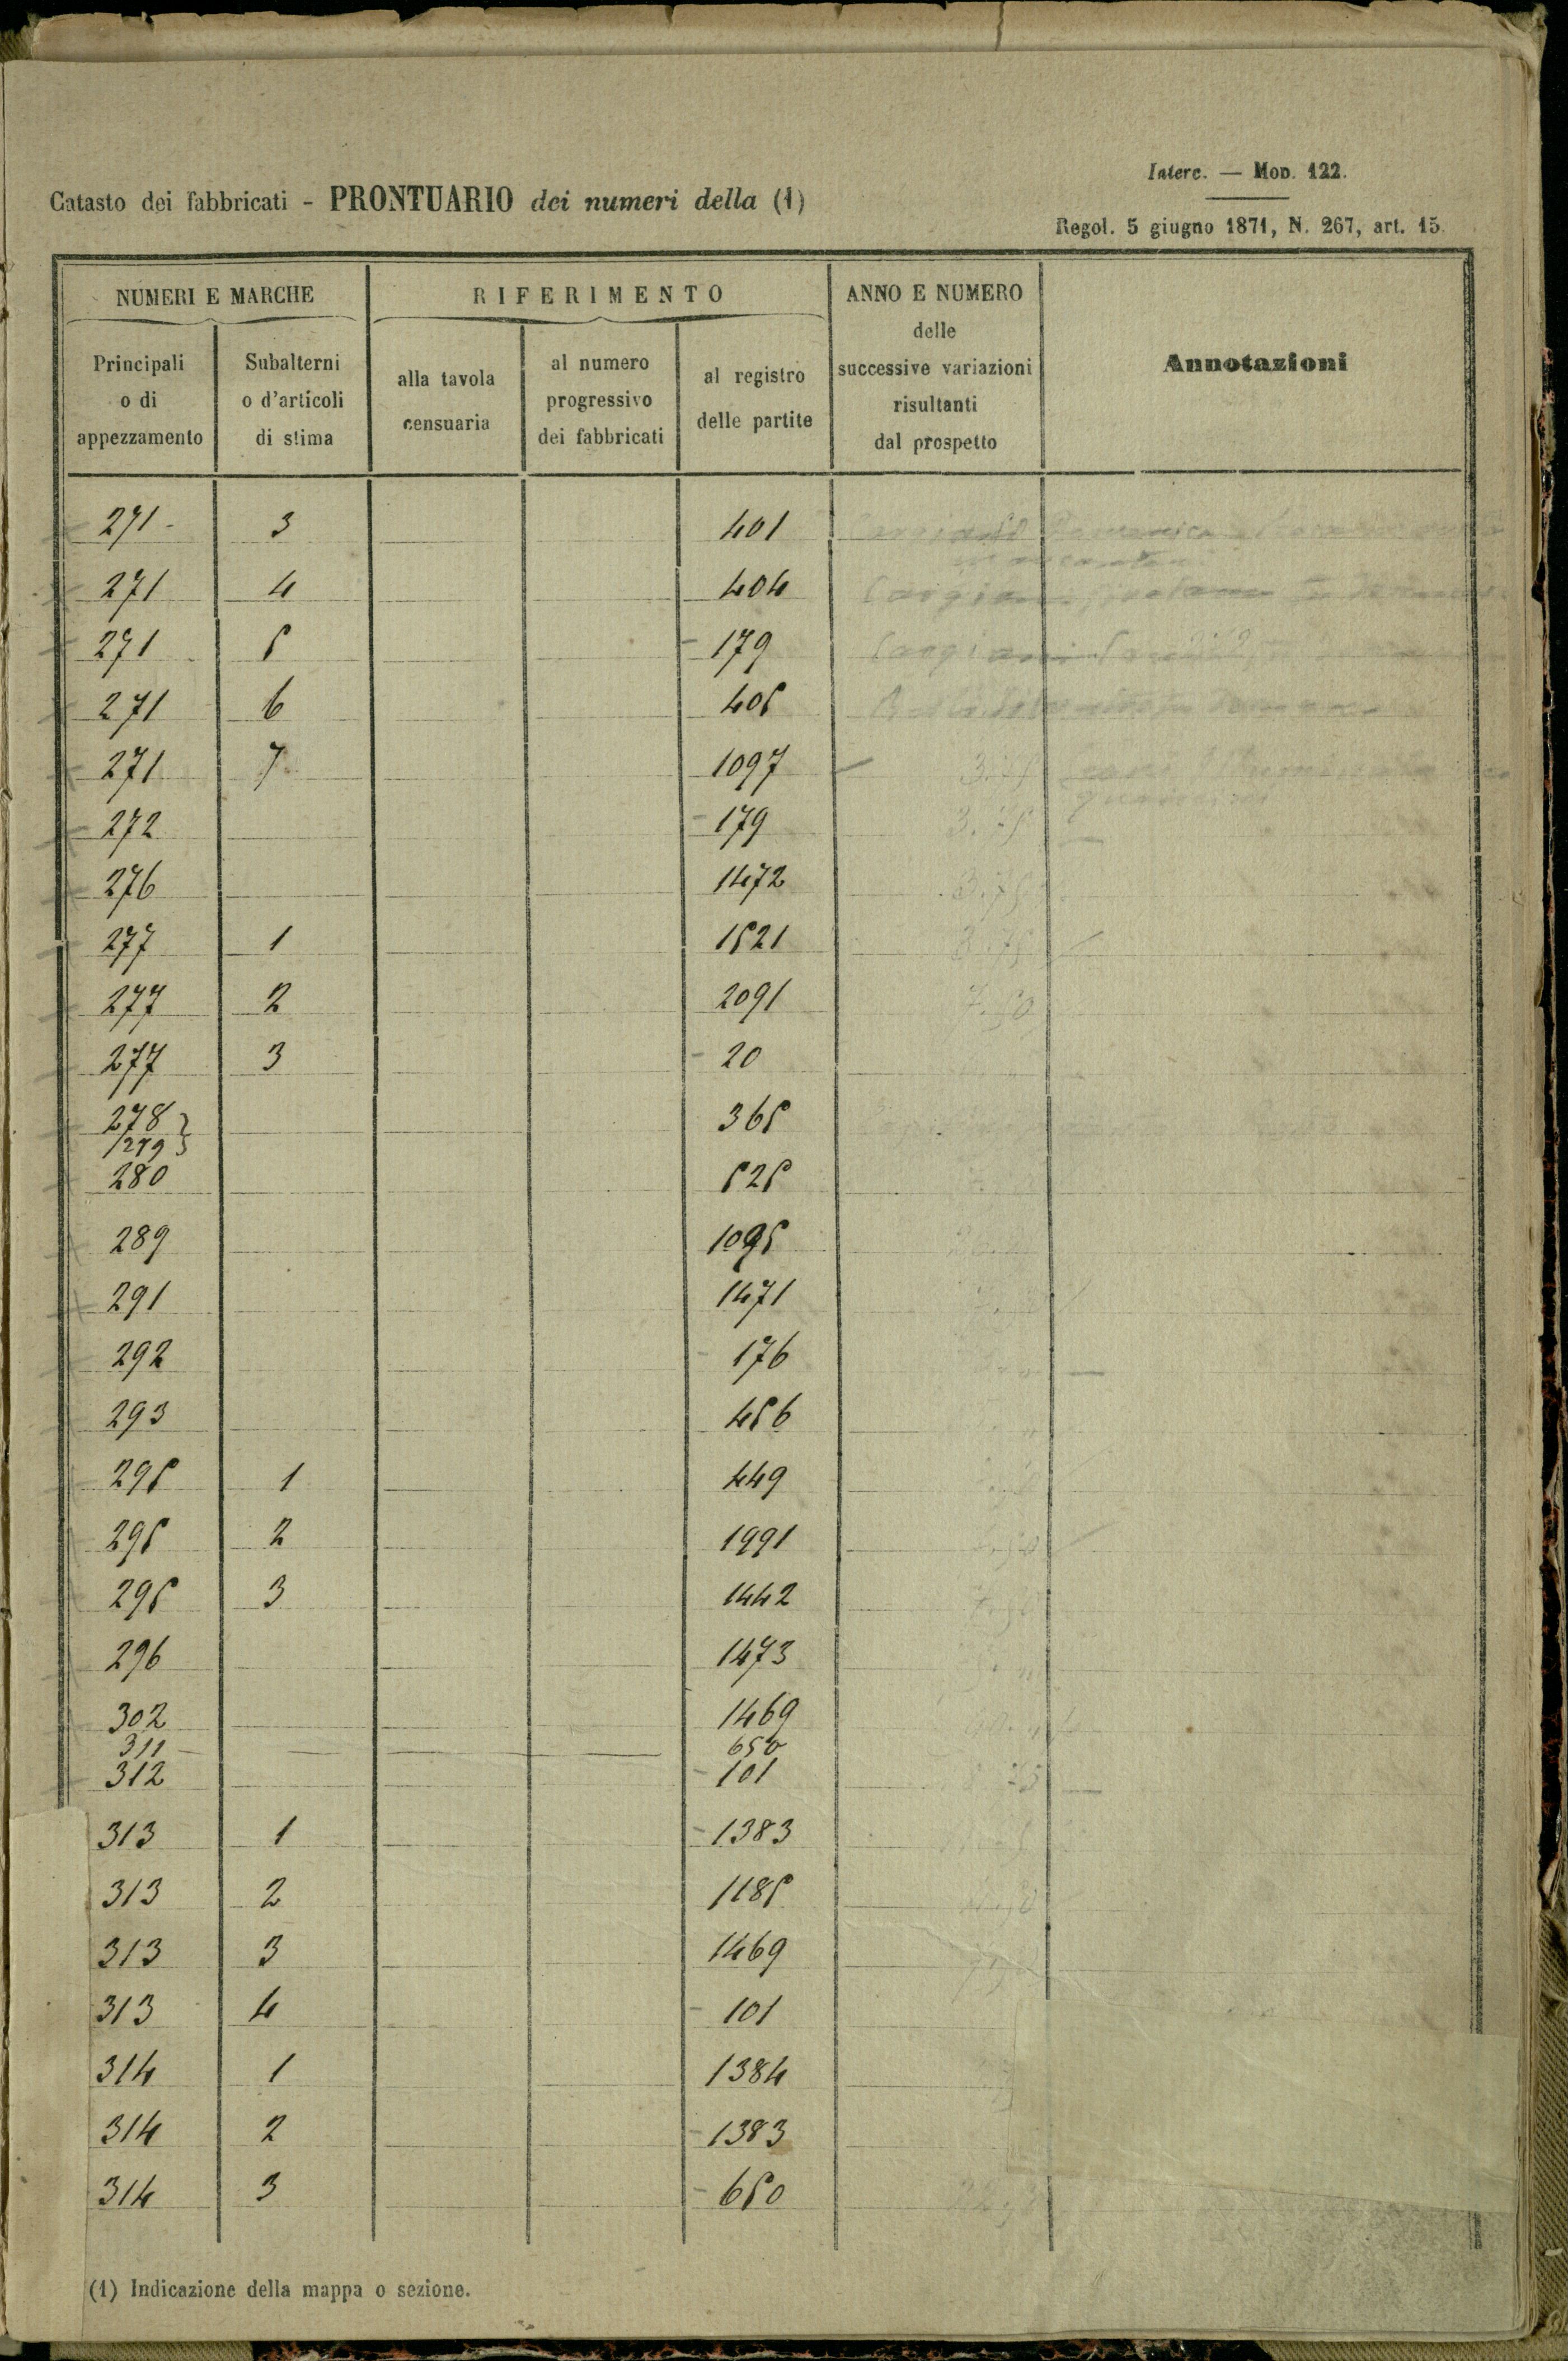 Interc. — Mod. 122.
Catasto dei fabbricati - PRONTUARIO dei numeri della (1)
Regol. 5 giugno 1871, N. 267, art. 15.
NUMERI E MARCHE
RIFERIMENTO
ANNO E NUMERO
delle
successive variazioni
risultanti
dal prospetto
Annotazioni
Principali
o di
appezzamento
Subalterni
o d'articoli
di stima
alla tavola
censuaria
al numero
progressivo
dei fabbricati
al registro
delle partite
271 - 3 401
271 4 404
271 5 - 179
271 6 405
271 7 1097
272 - 179
276 1472
277 1 1521
277 2 2091
277 3 - 20
278 } 365
/279 }
280 525
289 1095
291 1471
292 - 176
293 456
295 1 449
295 2 1991
295 3 1442
296 1473
302 1469
311 650
312 - 101
313 1 - 1383
313 2 1185
313 3 1469
313 4 - 101
314 1 1384
314 2 - 1383
314 3 - 650
(1) Indicazione della mappa o sezione.